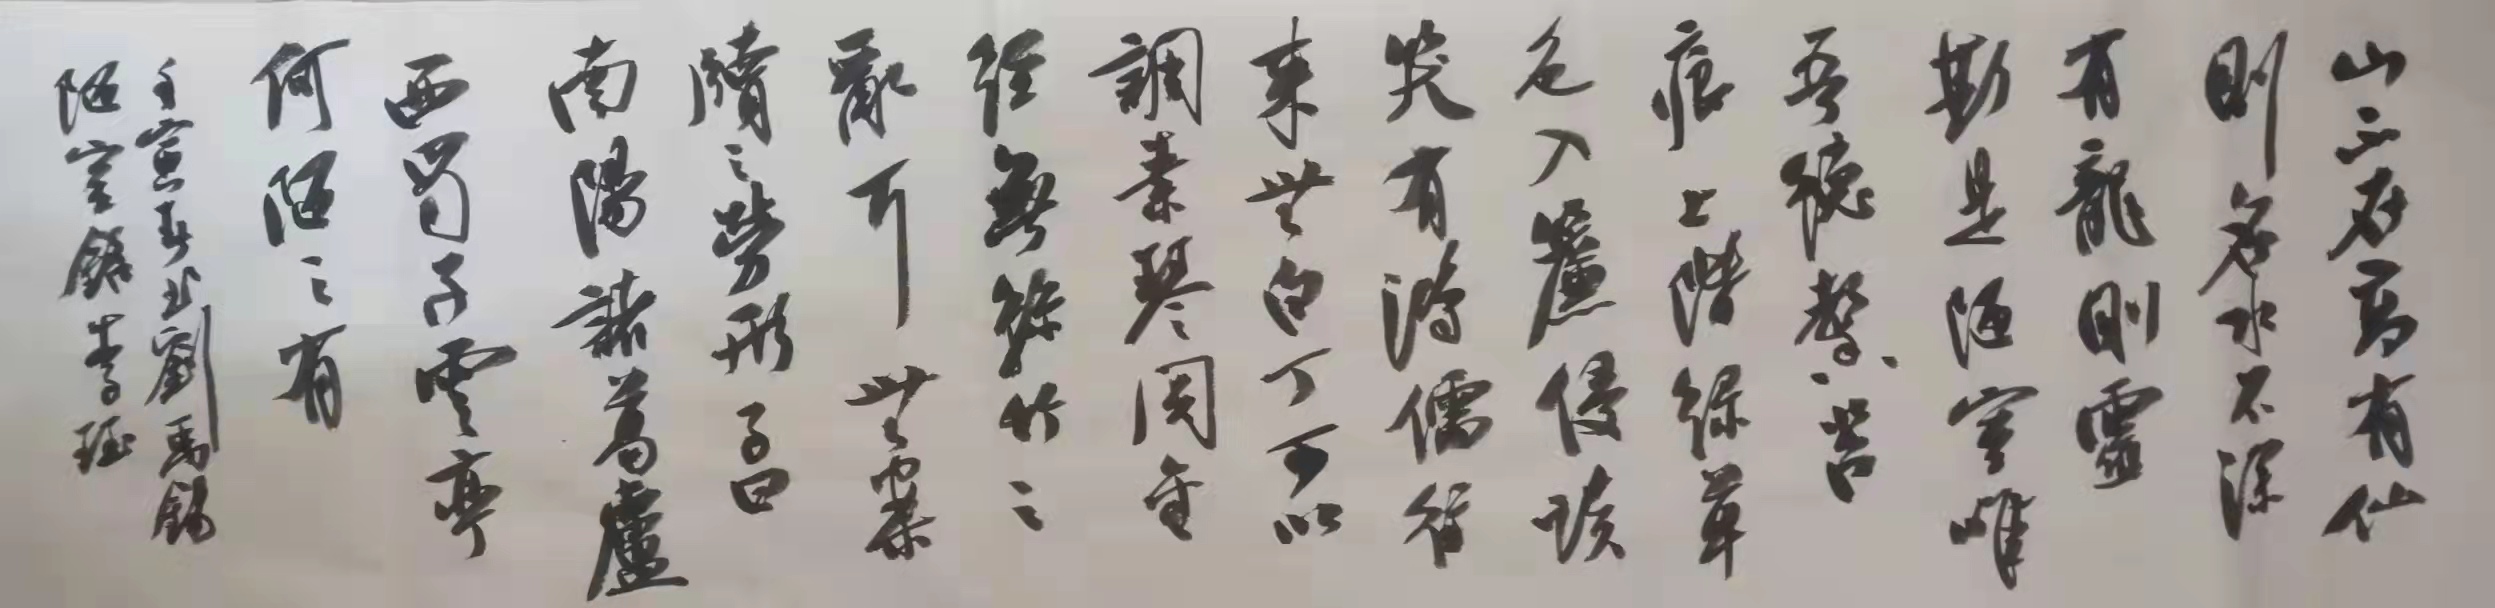 山不在高有仙
則名水不深
有龍則靈
斯是陋室唯
吾德馨苔
痕上階緑草
色入簾侵談
笑有鴻儒往
來無白丁可以
調素琴閱金
經無絲竹之
亂耳無案
牘之勞形子曰
南陽諸葛廬
西蜀子雲亭
何陋之有
壬寅春书劉禹錫
陋室銘李